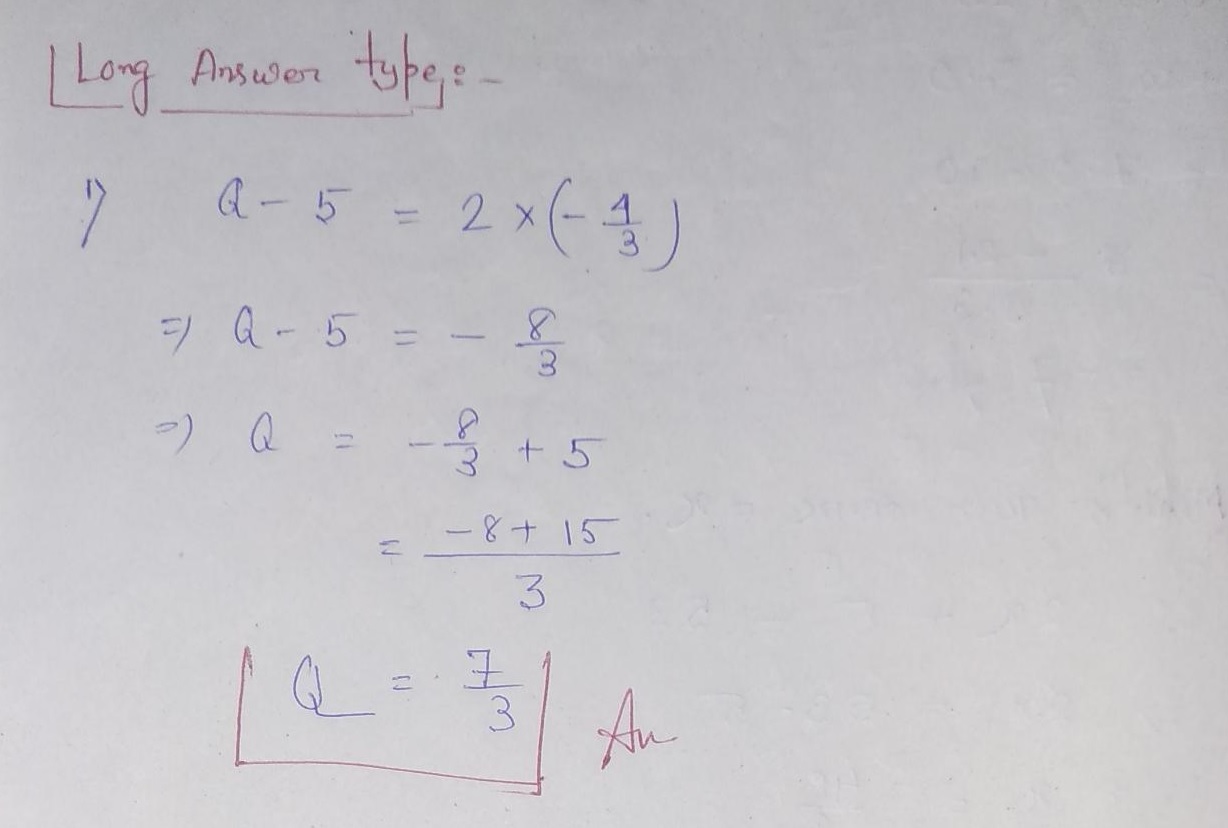 Long Answer type:-
1) Q - 5 = 2 × (- 4/3)
⇒ Q - 5 = - 8/3
⇒ Q = - 8/3 + 5
= -8 + 15 / 3
Q = 7/3 An